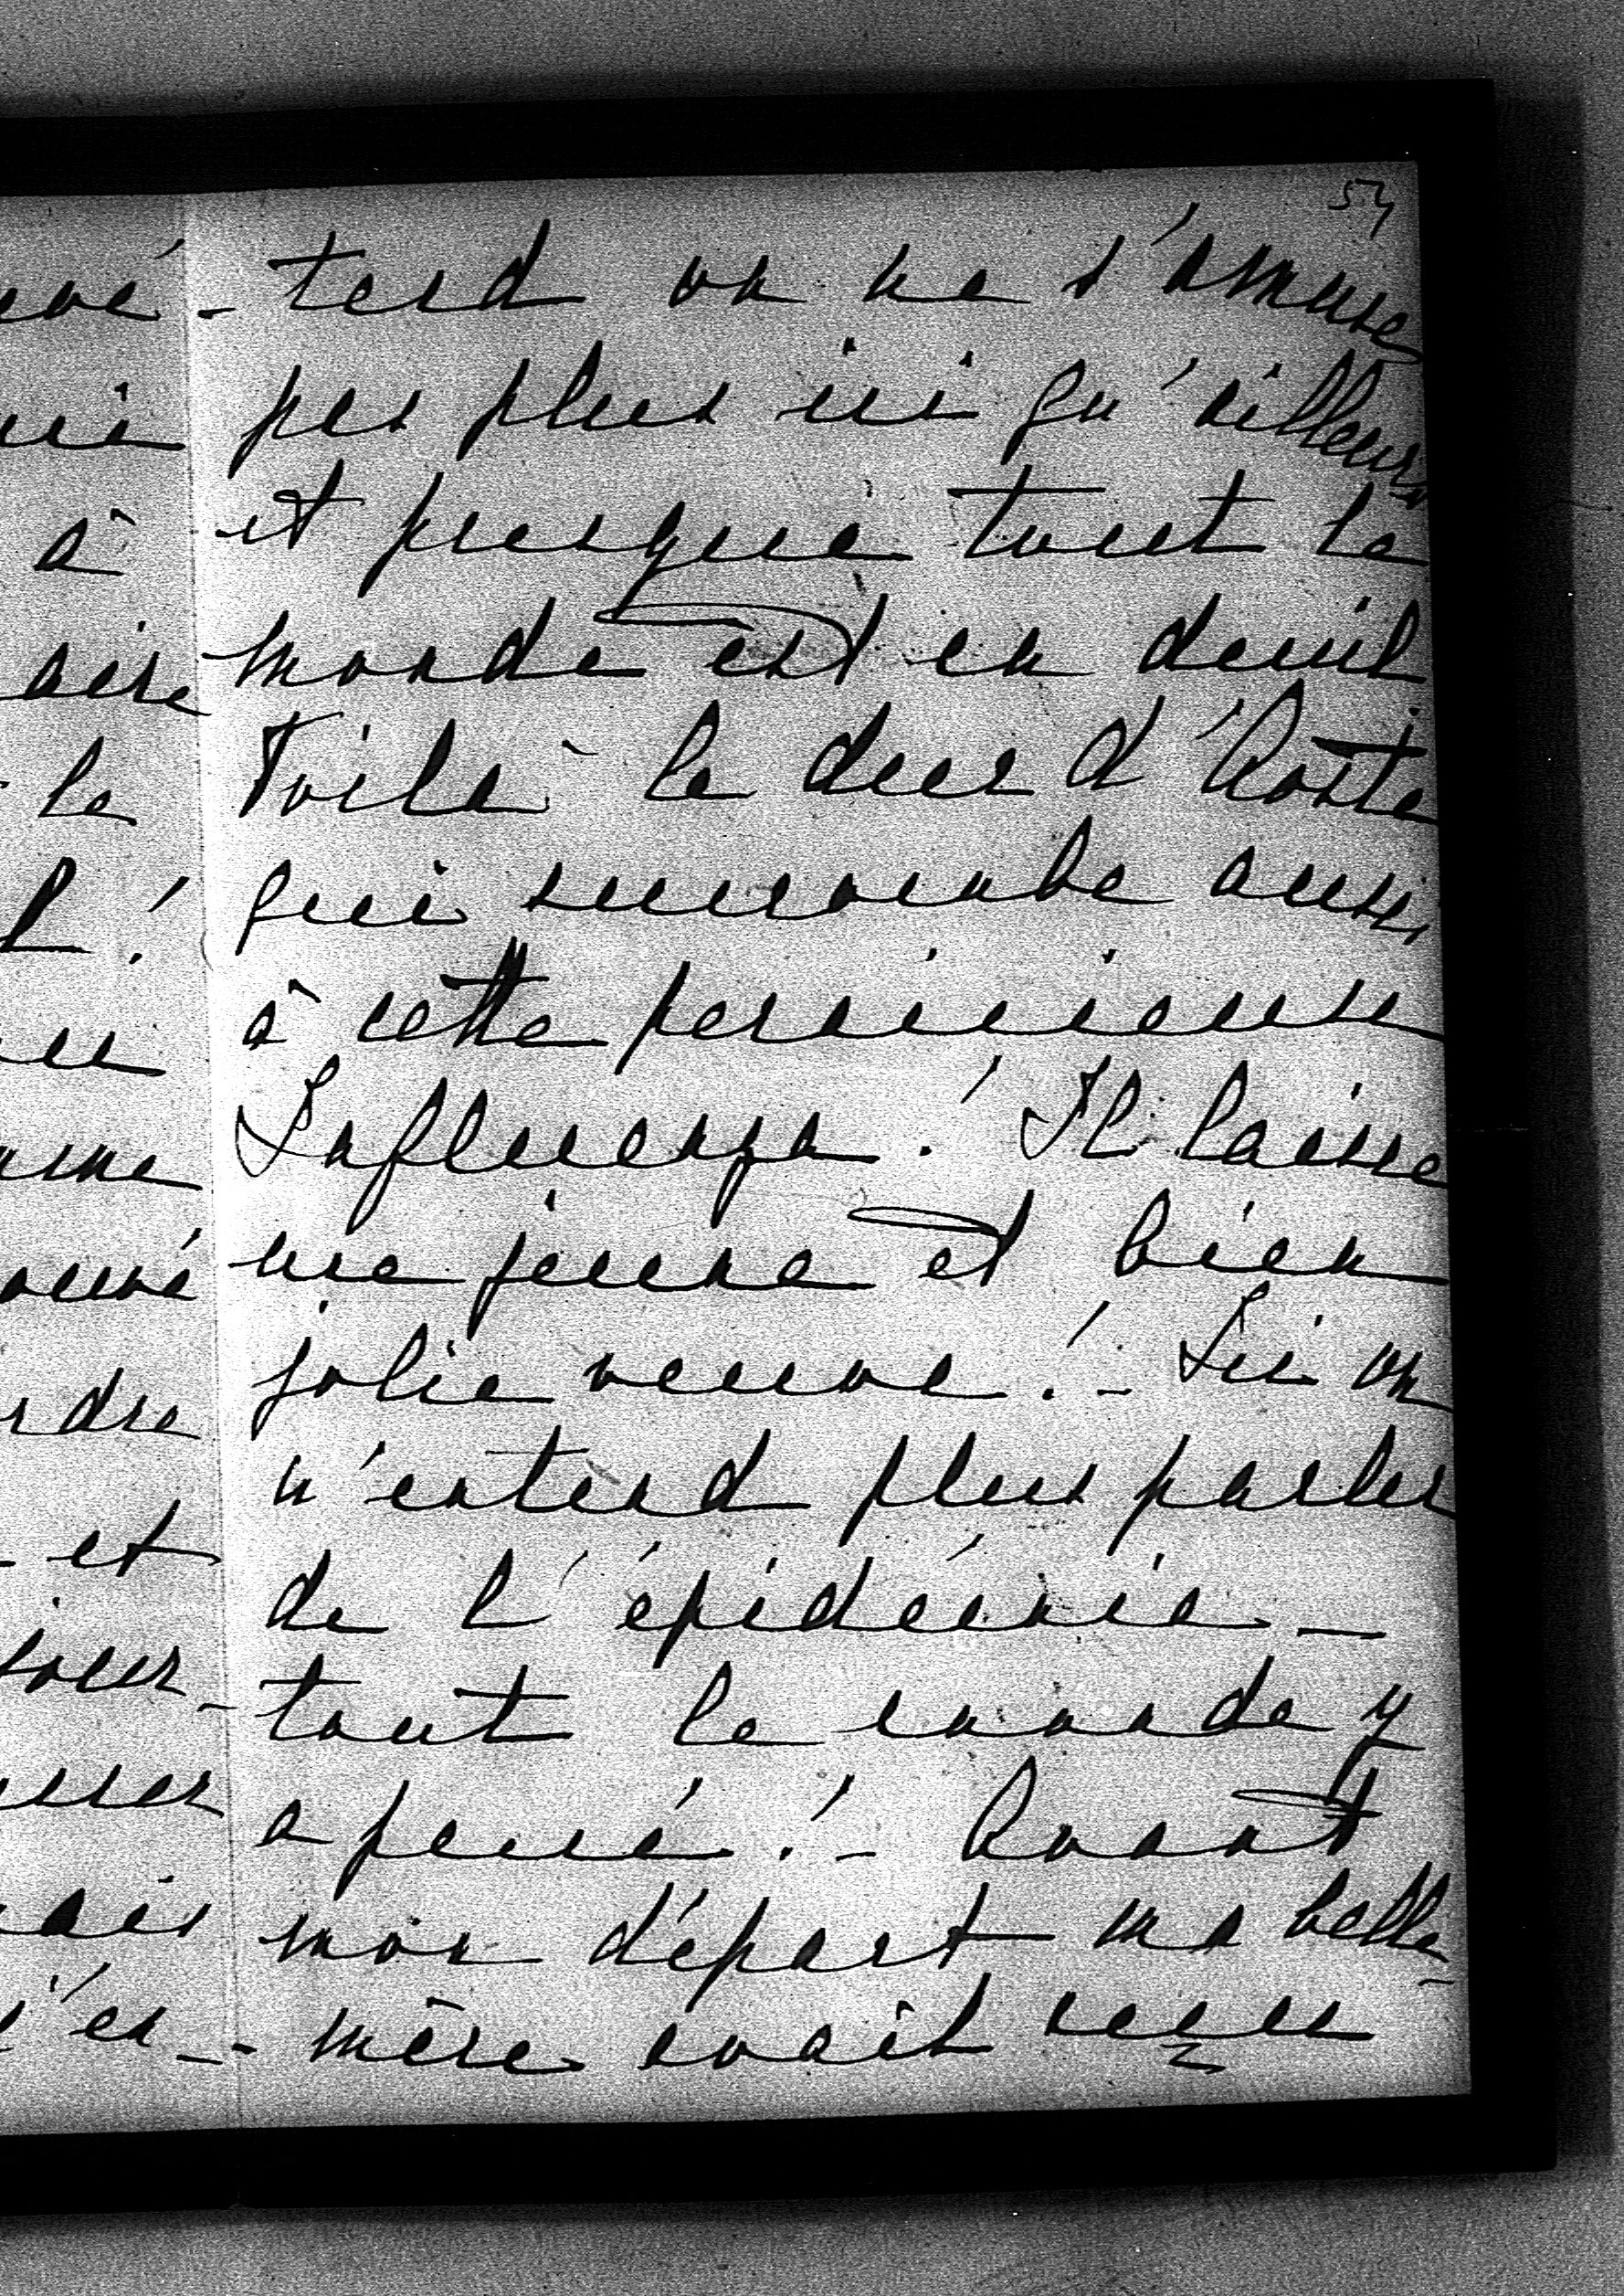 57
-tend on ne s'amuse
pas plus ici qu'ailleurs
et presque tout le
monde est en deuil
Voilà le duc d'Aoste
qui succombe aussi
à cette pernicieuse
Influenza! Il laisse
une jeune et bien
jolie veuve! - Ici on
n'entend plus parler
de l'épidémie -
tout le monde y
a passé! - Avant
mon départ ma belle-
-mère avait reçu
à
aire
le
!
rdre
- et